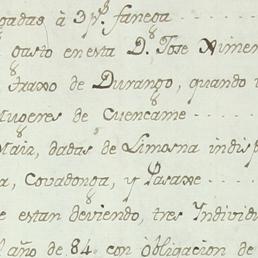 gadas à 3 p.s fanega
gasto en esta D. Jose Ximen
traxo de Durango, quando
Mugeres de Cuencame
Maiz, dadas de Limosna indis
a, Covadonga, y Pasaxe
e estan deviendo, tres Individ
l año de 84 con Obligacion de